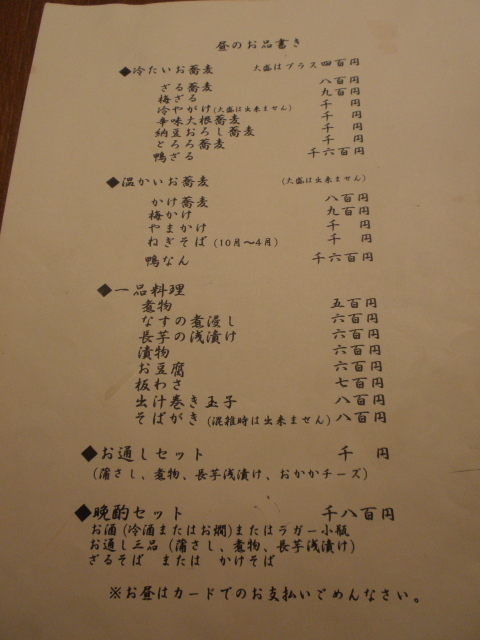 昼のお品書き
◆冷たいお蕎麦 大盛はプラス四百円
ざる蕎麦 八百円
梅ざる 九百円
冷やがけ(大盛は出来ません) 千円
辛味大根蕎麦 千円
納豆おろし蕎麦 千円
とろろ蕎麦 千円
鴨ざる 千六百円
◆温かいお蕎麦 (大盛は出来ません)
かけ蕎麦 八百円
梅かけ 九百円
やまかけ 千円
ねぎそば (10月〜4月) 千円
鴨なん 千六百円
◆一品料理
煮物 五百円
なすの煮浸し 六百円
長芋の浅漬け 六百円
漬物 六百円
お豆腐 六百円
板わさ 七百円
出汁巻き玉子 八百円
そばがき (混雑時は出来ません) 八百円
◆お通しセット 千円
(蒲さし、煮物、長芋浅漬け、おかかチーズ)
◆晩酌セット 千八百円
お酒 (冷酒またはお燗) またはラガー小瓶
お通し三品 (蒲さし、煮物、長芋浅漬け)
ざるそば または かけそば
※お昼はカードでのお支払いごめんなさい。